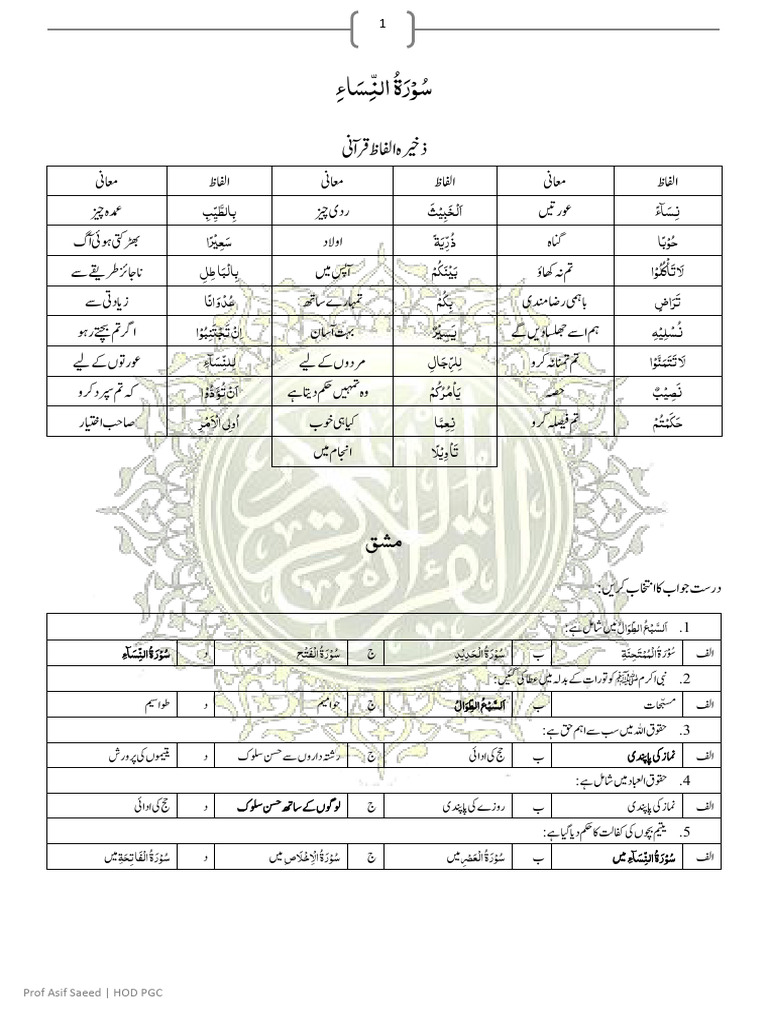 1
سُوْرَةُ النِّسَاءِ
ذخیرہ الفاظ قرآنی
الفاظ معانی الفاظ معانی الفاظ معانی
نِسَاءً عورتیں اَلْخَبِیْثَ ردی چیز بِالطَّیِّبِ عمدہ چیز
حُوْبًا گناہ ذُرِّیَّةً اولاد سَعِیْرًا بھڑکتی ہوئی آگ
لَا تَاْكُلُوْا تم نہ کھاؤ بَیْنَكُمْ آپس میں بِالْبَاطِلِ ناجائز طریقے سے
تَرَاضٍ باہمی رضامندی بِكُمْ تمہارے ساتھ عُدْوَانًا زیادتی سے
نُصْلِیْهِ ہم اسے جھلساویں گے یَسِیْرًا بہت آسان اِنْ تَجْتَنِبُوْا اگر تم بچتے رہو
لَا تَتَمَنَّوْا تم تمنا نہ کرو لِلرِّجَالِ مردوں کے لیے لِلنِّسَاءِ عورتوں کے لیے
نَصِیْبٌ حصہ یَاْمُرُكُمْ وہ تمہیں حکم دیتا ہے اَنْ تُؤَدُّوْا کہ تم سپرد کرو
حَكَمْتُمْ تم فیصلہ کرو نِعِمَّا کیا ہی خوب اُولِی الْاَمْرِ صاحب اختیار
تَاْوِیْلًا انجام میں
مشق
درست جواب کا انتخاب کریں:
1. اَلسَّبْعُ الطِّوَالُ میں شامل ہے:
الف سُوْرَةُ الْمُمْتَحِنَةِ ب سُوْرَةُ الْحَدِیْدِ ج سُوْرَةُ الْفَتْحِ د سُوْرَةُ النِّسَاءِ
2. نبی اکرم ﷺ کو تورات کے بدلہ میں عطا کی گئیں:
الف مسبحات ب اَلسَّبْعُ الطِّوَالُ ج حوامیم د طواسیم
3. حقوق اللہ میں سب سے اہم حق ہے:
الف نماز کی پابندی ب حج کی ادائی ج رشتہ داروں سے حسن سلوک د یتیموں کی پرورش
4. حقوق العباد میں شامل ہے:
الف نماز کی پابندی ب روزے کی پابندی ج لوگوں کے ساتھ حسن سلوک د حج کی ادائی
5. یتیم بچوں کی کفالت کا حکم دیا گیا ہے:
الف سُوْرَةُ النِّسَاءِ میں ب سُوْرَةُ الْعَصْرِ میں ج سُوْرَةُ الْاِخْلَاصِ میں د سُوْرَةُ الْفَاتِحَةِ میں
Prof Asif Saeed | HOD PGC